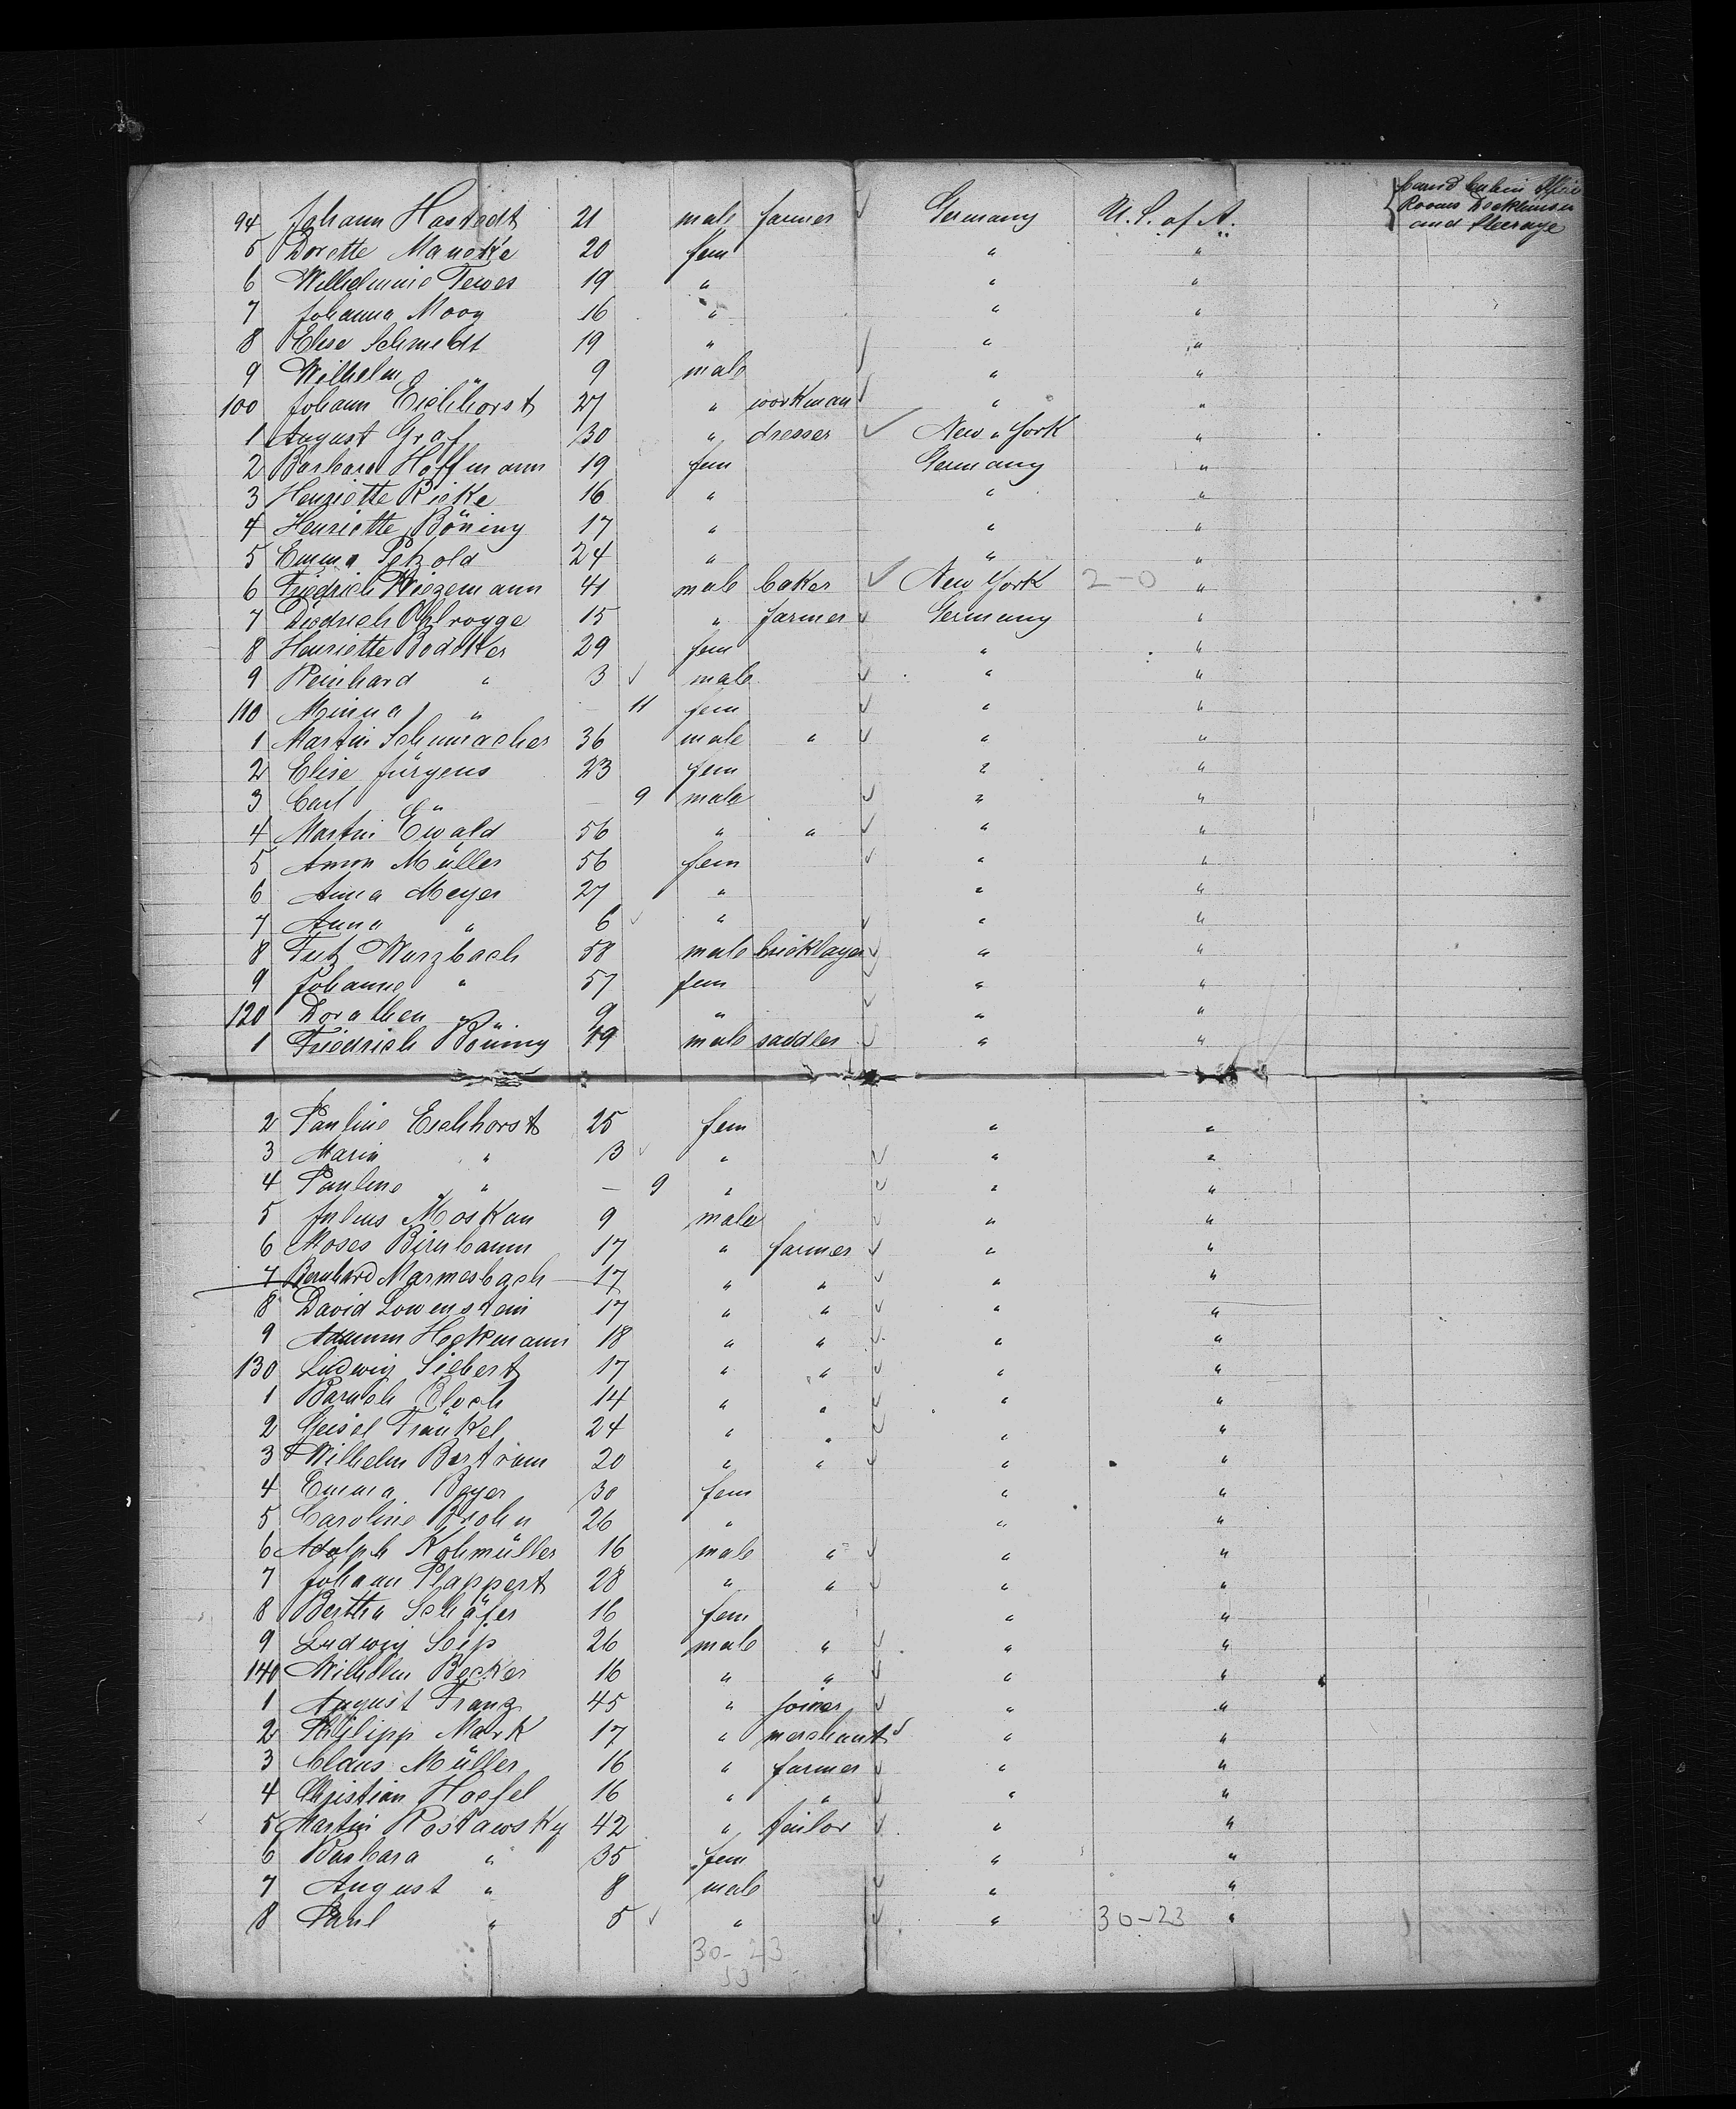 94 Johann Hastedt 21 male farmer Germany U. S. of A.
and Steerage
5 Dorette Maneke 20 fem " "
6 Wilhelmine Tewes 19 " " "
7 Johanna Moog 16 " " "
8 Elise Schmidt 19 " " "
9 Wilhelm " 9 male " "
100 Johann Eichhorst 27 " workman " "
1 August Graf 30 " dresser New York "
2 Barbara Hoffmann 19 fem Germany "
3 Henriette Rieke 16 " " "
4 Henriette Böning 17 " " "
5 Emma Petzold 24 " " "
6 Friedrich Wiezemann 41 male baker New York 2-0 "
7 Diedrich Ohlrogge 15 " farmer Germany "
8 Henriette Boddker 29 fem " "
9 Reinhard " 3 male " "
110 Minna " - 11 fem " "
1 Martin Schumacher 36 male " " "
2 Elise Jürgens 23 fem " "
3 Carl " - 9 male " "
4 Martin Ewald 56 " " " "
5 Anna Müller 56 fem " "
6 Anna Meyer 27 " " "
7 Anna " 6 " " "
8 Fritz Wurzbach 58 male bricklayer " "
9 Johanne " 57 fem " "
120 Dorothea " 9 " " "
1 Friedrich Böning 49 male saddler " "
2 Pauline Eichhorst 25 fem " "
3 Maria " 3 " " "
4 Pauline " - 9 " " "
5 Julius Moskau 9 male " "
6 Moses Birnbaum 17 " farmer " "
7 Bernhard Marmesbach 17 " " " "
8 David Lowenstein 17 " " " "
9 Heckmann 18 " " " "
130 Ludwig Siebert 17 " " " "
1 Baruch Bloch 14 " " " "
2 Geisel Fränkel 24 " " " "
3 Wilhelm Bertram 20 " " " "
4 Emma Beyer 30 fem " "
5 Caroline Brohn 26 " " "
6 Adolph Kohmüller 16 male " " "
7 Johann Plappert 28 " " " "
8 Bertha Schäfer 16 fem " "
9 Ludwig Seip 26 male " " "
140 Wilhelm Becker 16 " " " "
1 August Franz 45 " joiner " "
2 Philipp Mark 17 " merchant " "
3 Claus Müller 16 " farmer " "
4 Christian Hoefel 16 " " " "
5 Martin Rostawsky 42 " tailor " "
6 Barbara " 35 fem " "
7 August " 8 male " "
8 Paul " 5 " " 30-23 "
30-23